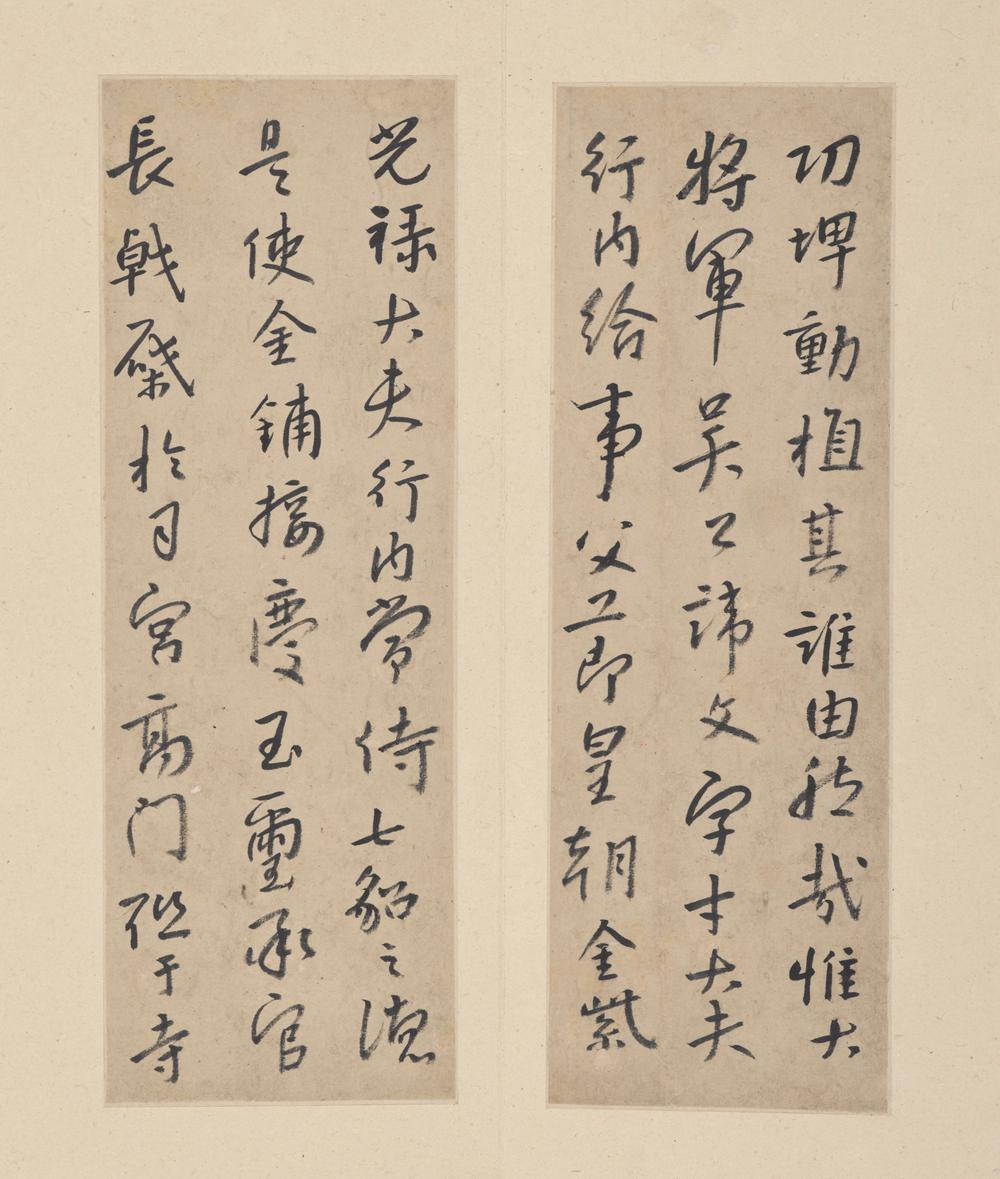 功埤動植其誰由然哉惟大
將軍吳公諱文字才大夫
行內給事父公即皇朝金紫
光祿大夫行內常侍七貂之德
是使金鋪接慶玉璽承官
長戟於司宮高門于寺